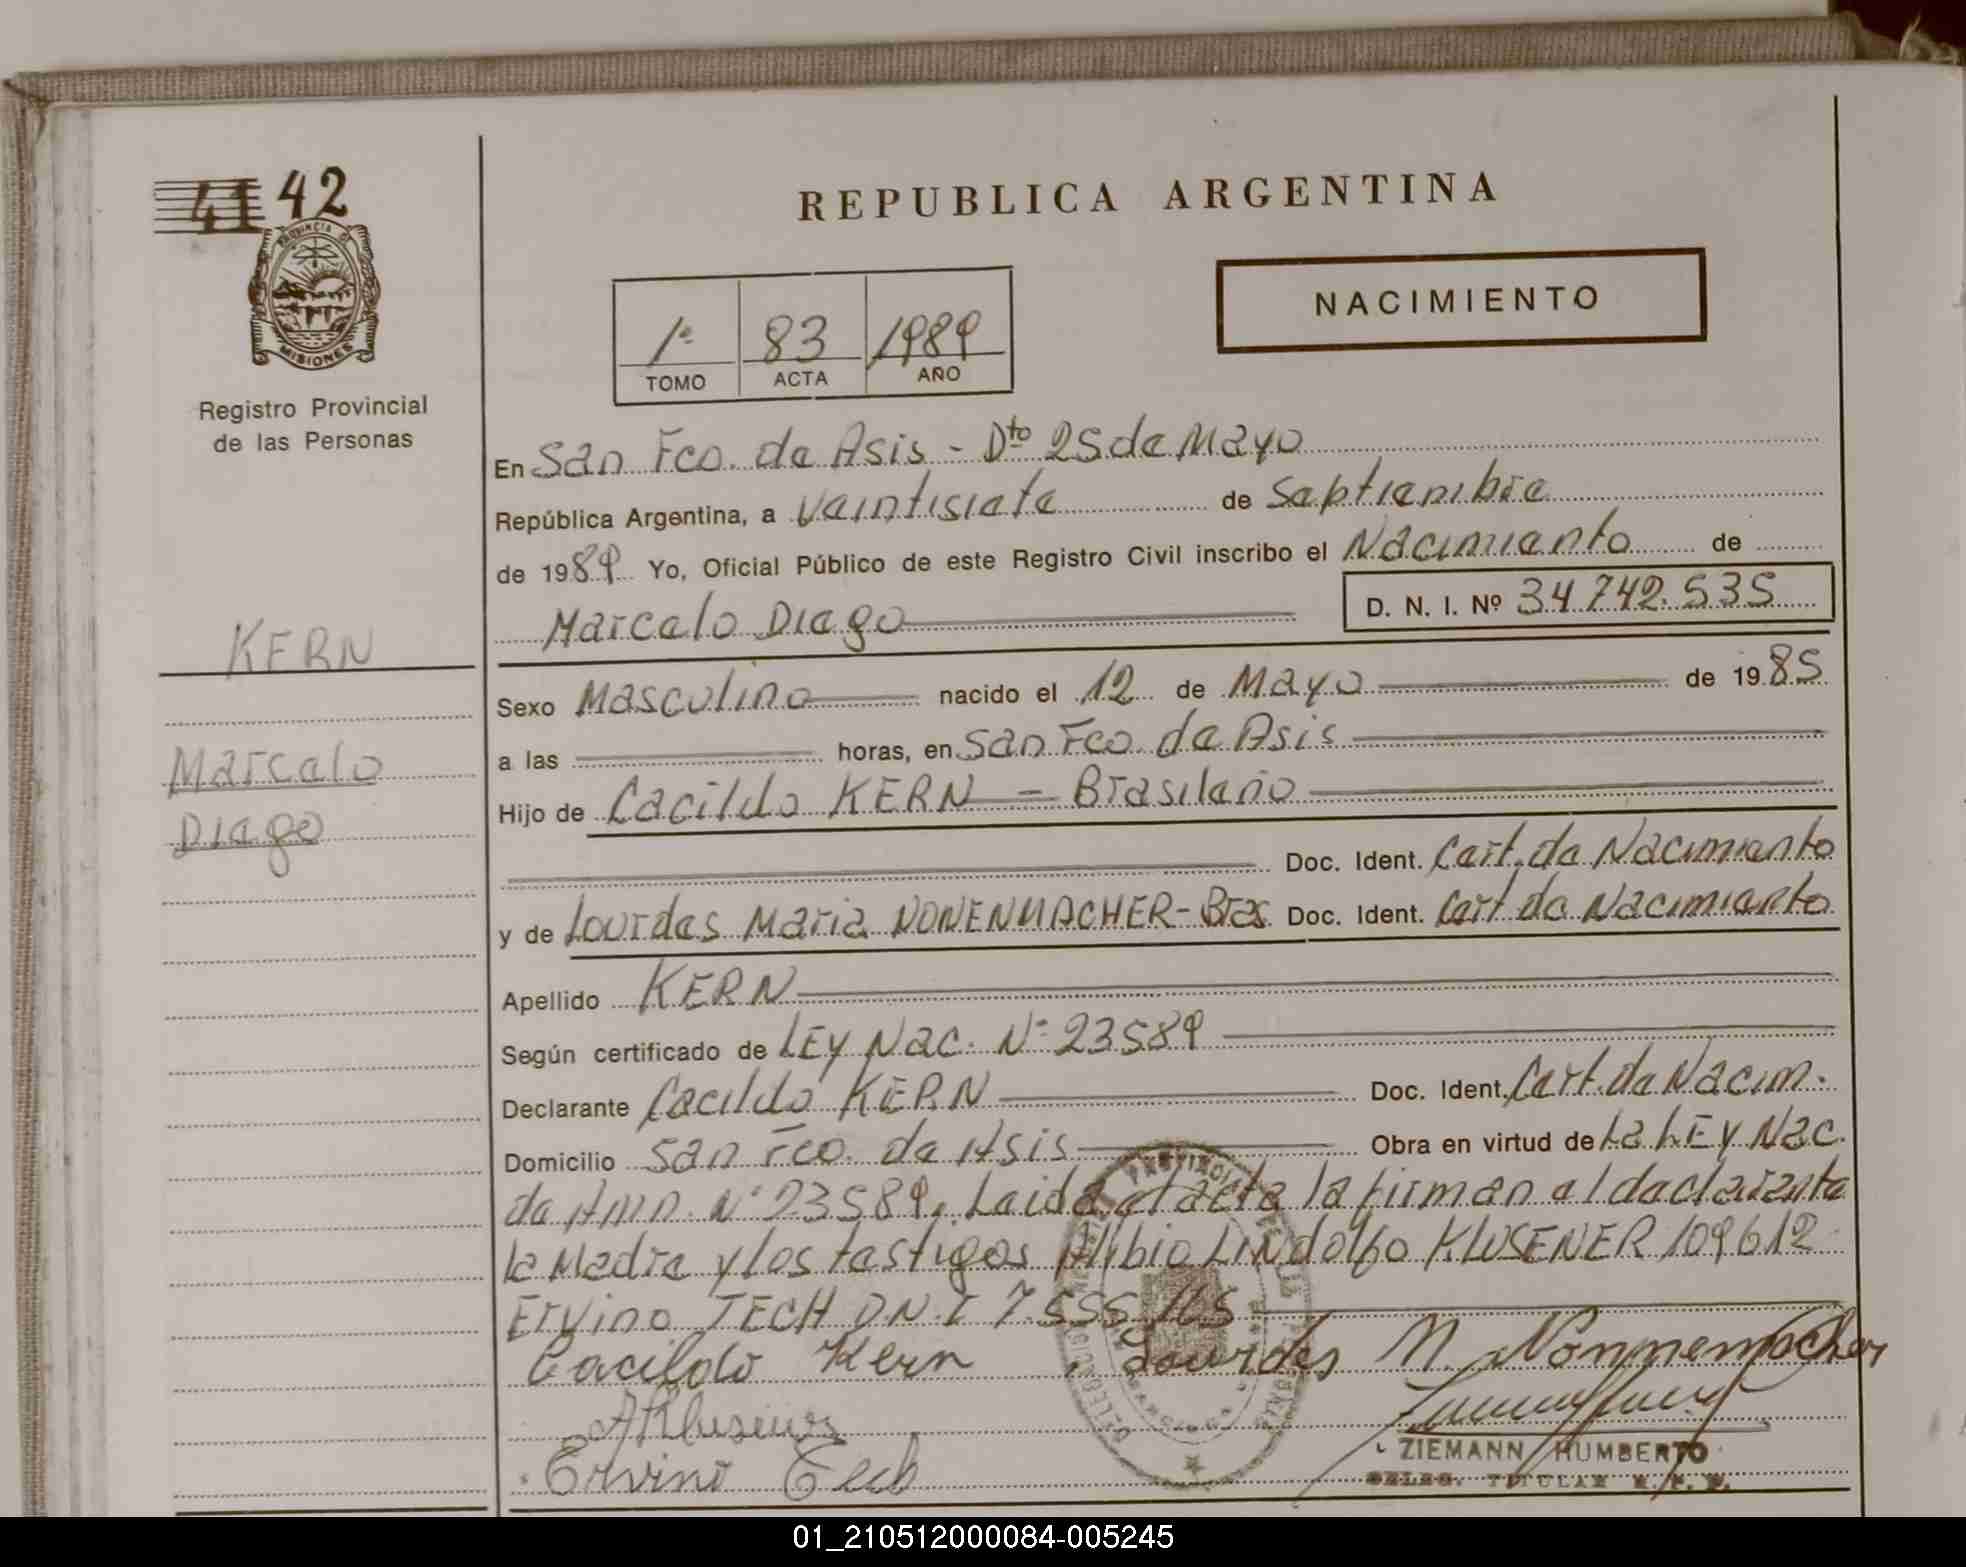 41 42
PROVINCIA DE
MISIONES
Registro Provincial
de las Personas
KERN
Marcelo
Diego
REPUBLICA ARGENTINA
1º 83 1989
TOMO ACTA AÑO
NACIMIENTO
En San Fco. de Asis - Dto 25 de Mayo
República Argentina, a veintisiete de Septiembre
de 1989 Yo, Oficial Público de este Registro Civil inscribo el Nacimiento de
Marcelo Diego D. N. I. Nº 34.742.535
Sexo Masculino nacido el 12 de Mayo de 1985
a las horas, en San Fco. de Asis
Hijo de Cacildo KERN - Brasileño
Doc. Ident. Cert. de Nacimiento
y de Lourdes Maria NONENMACHER - Bras Doc. Ident. Cert de Nacimiento
Apellido KERN
Según certificado de LEY Nac. Nº 23589
Declarante Cacildo KERN Doc. Ident. Cert. de Nacim.
Domicilio San Fco. de Asis Obra en virtud de La LEY Nac.
de Amn. Nº 23589, Leida el acta la firman el declarante
la Madre y los testigos Albio LINdolfo KLUSENER 109612
Ervino TECH D.N.I 7.555.165
Cacildo Kern Lourdes M. Nonnemacher
AKlusener
Ervino Tech
ZIEMANN HUMBERTO
DELEG. TITULAR R. P. P.
01_210512000084-005245